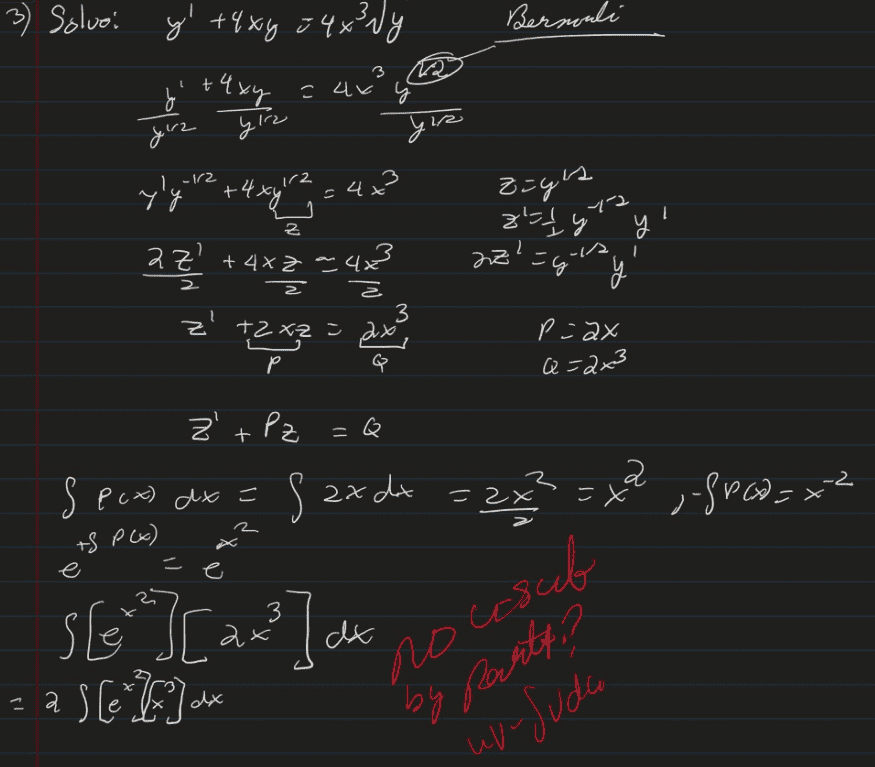 3) Solve: y' + 4xy = 4x³√y Bernouli
y'/y^1/2 + 4xy/y^1/2 = 4x³ y^1/2/y^1/2
y'y^-1/2 + 4xy^1/2 = 4x³ z = y^1/2
z z' = 1/2 y^-1/2 y'
2z'/2 + 4xz/2 = 4x³/2 2z' = y^-1/2 y'
z' + 2xz = 2x³ P = 2x
P Q Q = 2x³
z' + Pz = Q
∫ P(x) dx = ∫ 2x dx = 2x²/2 = x² , -∫P(x) = x^-2
e^+∫P(x) = e^x²
∫[e^x²][2x³] dx
= 2 ∫[e^x²][x³] dx
NO u-sub
by Parts?
uv-∫vdu